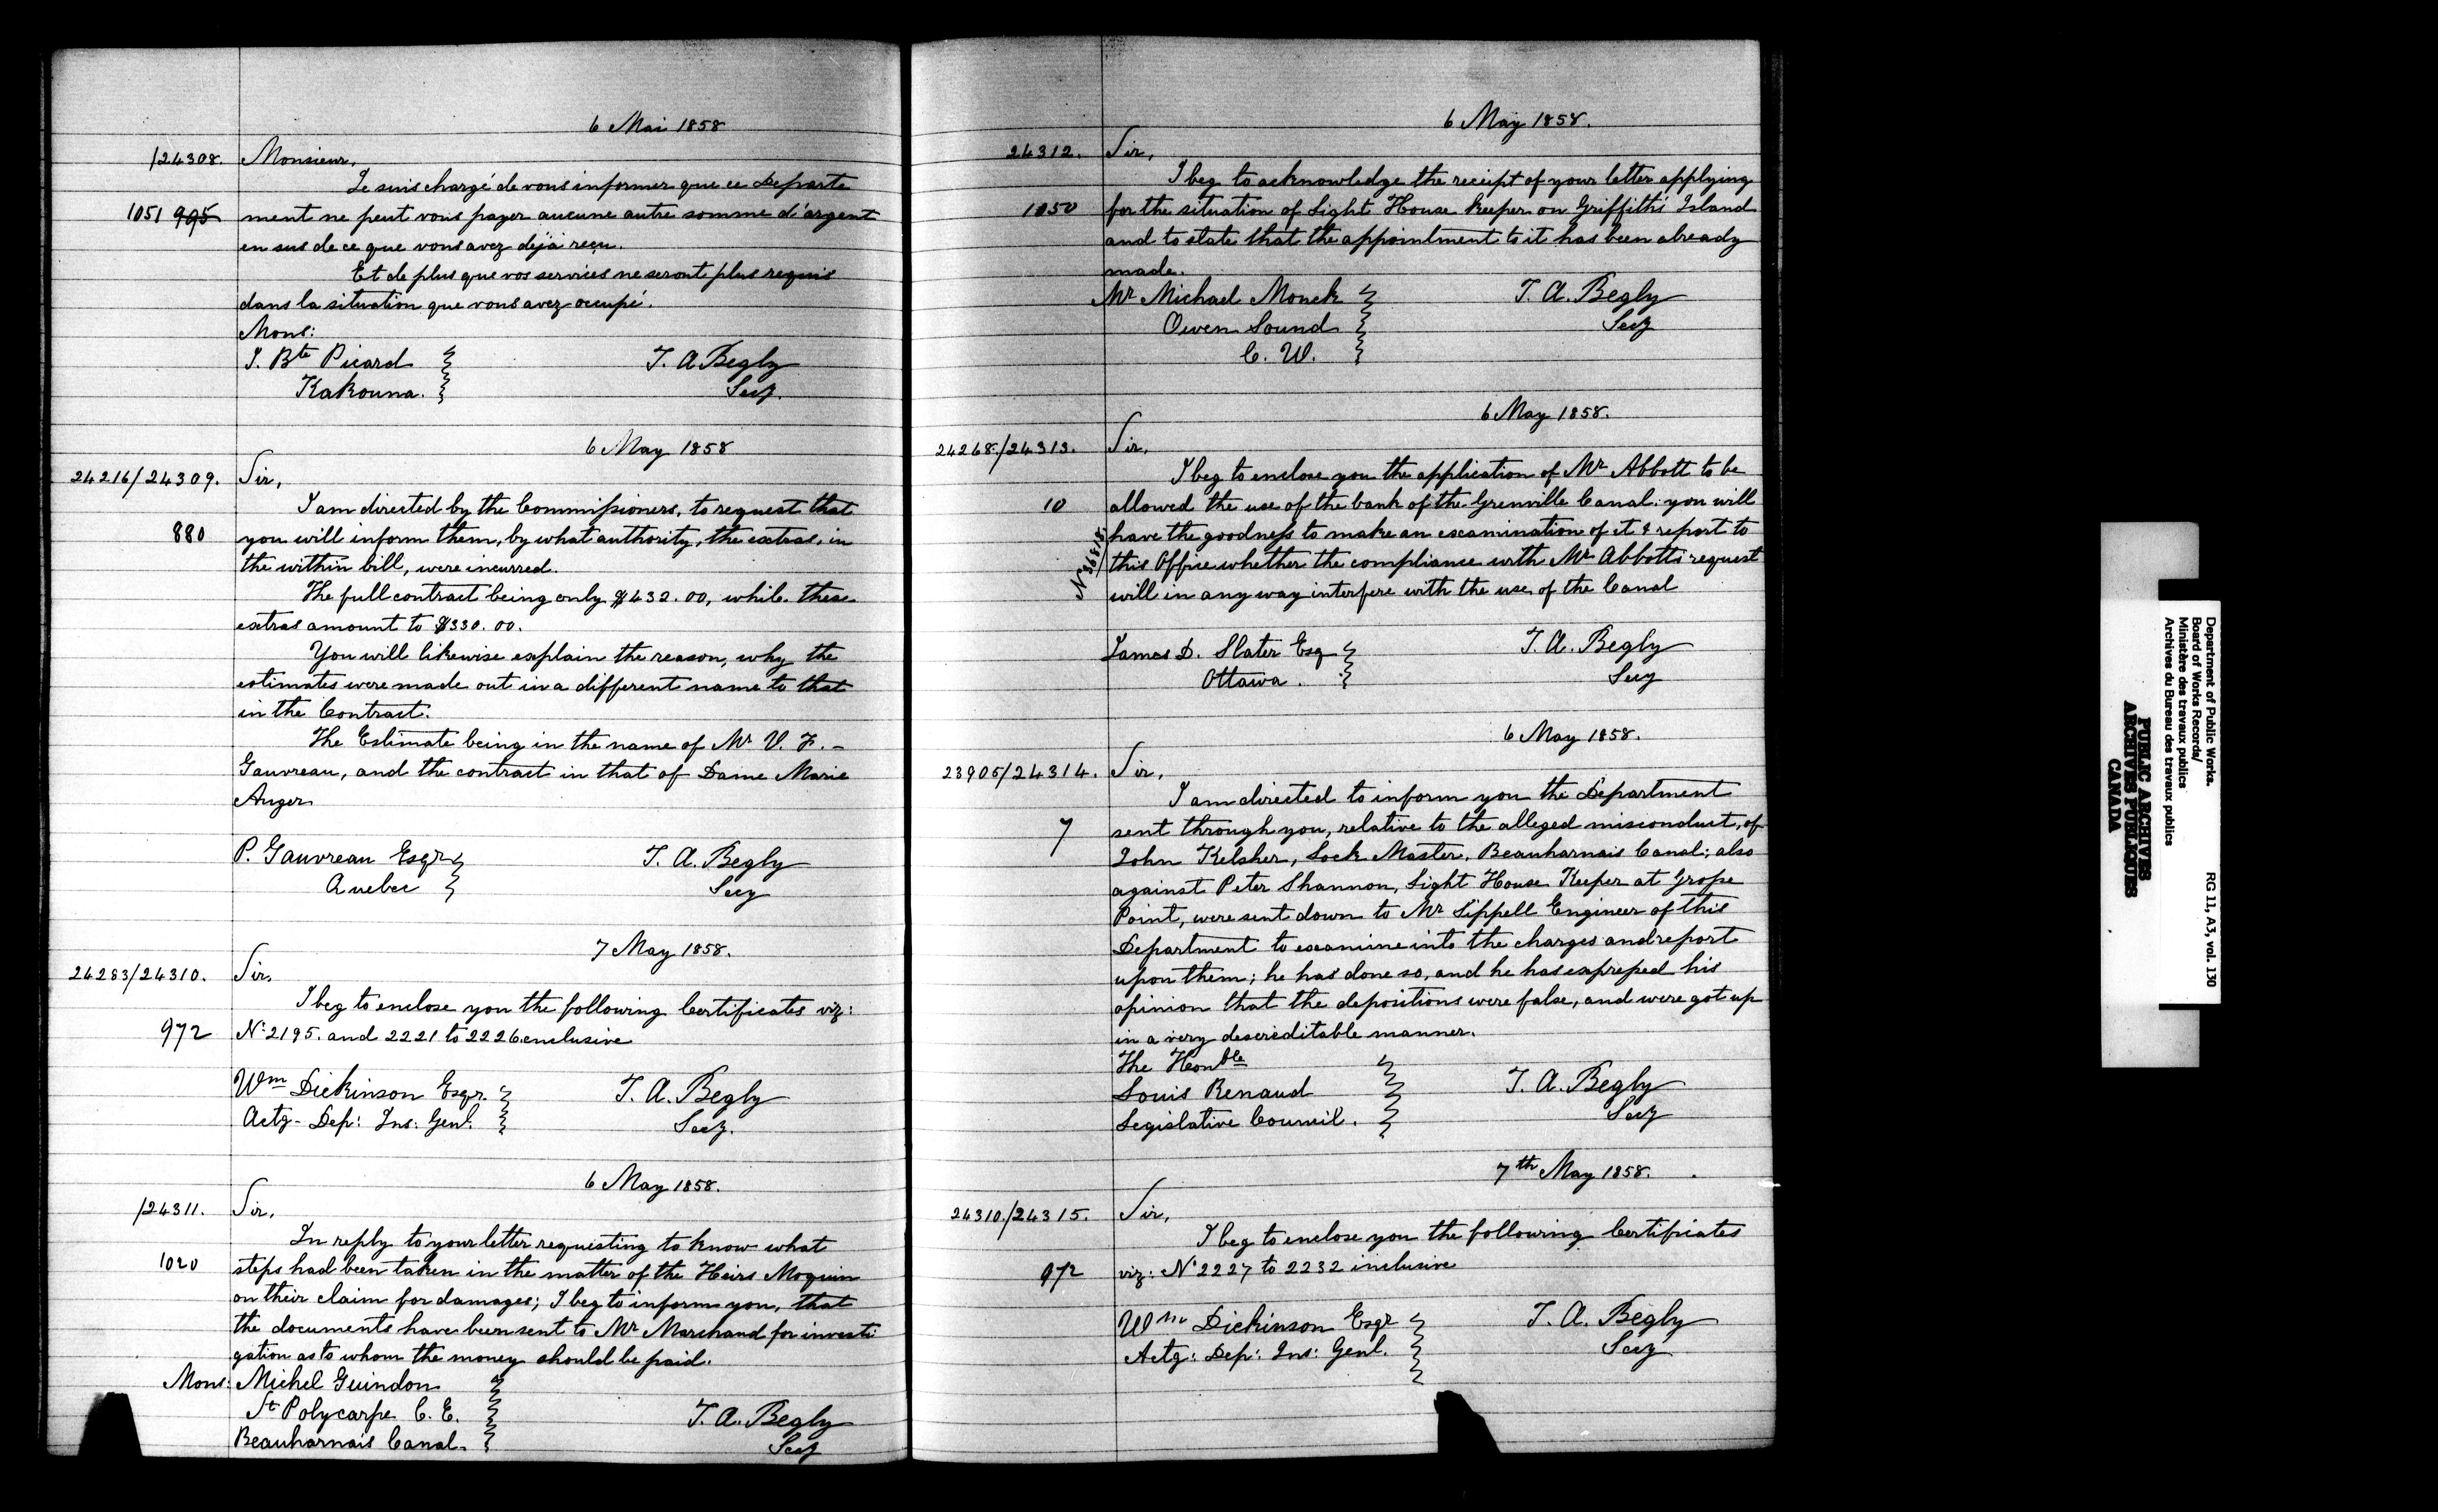 6 Mai 1858
/24308. Monsieur,
Je suis chargé de vous informer que ce Departe
1051 995 ment ne peut vous payer aucune autre somme d'argent
en sus de ce que vous avez déjà reçu.
Et de plus que vos services ne seront plus requis
dans la situation que vous avez occupé.
Mons:
J. Bte Picard T. A. Begly
Kakouna. Secy.
6 May 1858
24216/24309. Sir,
I am directed by the Commissioners, to request that
880 you will inform them, by what authority, the extras, in
the within bill, were incurred.
The full contract being only $432.00, while these
extras amount to $330.00.
You will likewise explain the reason, why the
estimates were made out in a different name to that
in the Contract.
The Estimate being in the name of Mr V. F. -
Gauvreau, and the contract in that of Dame Marie
Auger
P. Gauvreau Esqr T. A. Begly
Quebec Secy
7 May 1858.
24283/24310. Sir,
I beg to enclose you the following Certificates viz:
972 No 2195. and 2221 to 2226 enclusive
Wm Dickinson Esqr. T. A. Begly
Actg- Dep: Ins: Genl. Secy.
6 May 1858.
/24311. Sir,
In reply to your letter requesting to know what
1020 steps had been taken in the matter of the Heirs Moquin
on their claim for damages; I beg to inform you, that
the documents have been sent to Mr Marchand for investi
gation as to whom the money should be paid.
Mons: Michel Guindon
St Polycarpe C. E. T. A. Begly
Beauharnais Canal. Secy
6 May 1858.
24312. Sir,
I beg to acknowledge the receipt of your letter applying
1050 for the situation of Light House Keeper on Griffith's Island
and to state that the appointment to it has been already
made.
Mr Michael Monck T. A. Begly
Owen Sound Secy
C. W.
6 May 1858.
24268./24313. Sir,
I beg to enclose you the application of Mr Abbott to be
10 allowed the use of the bank of the Grenville Canal: you will
have the goodness to make an examination of it & report to
No 36815. this Office whether the compliance with Mr Abbotts request
will in any way interfere with the use of the Canal
James D. Slater Esq T. A. Begly
Ottawa. Secy
6 May 1858.
23905/24314. Sir,
I am directed to inform you the Department
7 sent through you, relative to the alleged misconduct, of
John Kelsher, Lock Master, Beauharnais Canal; also
against Peter Shannon, Light House Keeper at Grosse
Point, were sent down to Mr Sippell Engineer of this
Department to examine into the charges and report
upon them; he has done so, and he has expressed his
opinion that the depositions were false, and were got up
in a very descreditable manner.
The Honble
Louis Renaud T. A. Begly
Legislative Council. Secy
7th May 1858.
24310./24315. Sir,
I beg to enclose you the following Certificates
972 viz: No 2227 to 2232 inclusive
Wm Dickinson Esqr T. A. Begly
Actg: Dep: Ins: Genl. Secy
Department of Public Works. RG 11, A3, vol. 130
Board of Works Records/
Ministère des travaux publics
Archives du Bureau des travaux publics
PUBLIC ARCHIVES
ARCHIVES PUBLIQUES
CANADA